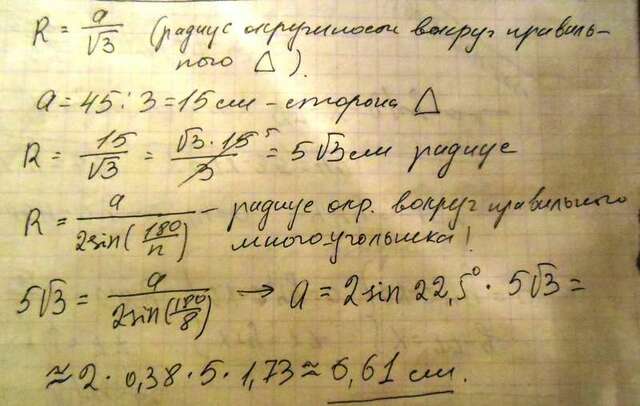 R = a/√3 (радиус окружности вокруг правиль-
ного △).
a = 45 : 3 = 15 см – сторона △
R = 15/√3 = √3·15/3 = 5√3 см радиус
R = a/(2sin(180/n)) – радиус окр. вокруг правильного
многоугольника!
5√3 = a/(2sin(180/8)) → a = 2sin 22,5° · 5√3 =
≈ 2 · 0,38 · 5 · 1,73 ≈ 6,61 см.